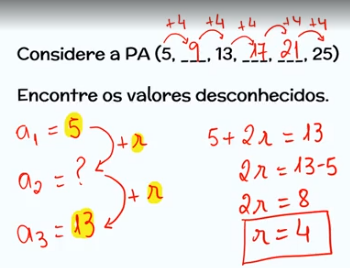 +4 +4 +4 +4 +4
Considere a PA (5, 9, 13, 17, 21, 25)
Encontre os valores desconhecidos.
a₁ = 5
+ r
a₂ = ?
+ r
a₃ = 13
5 + 2r = 13
2r = 13 - 5
2r = 8
r = 4